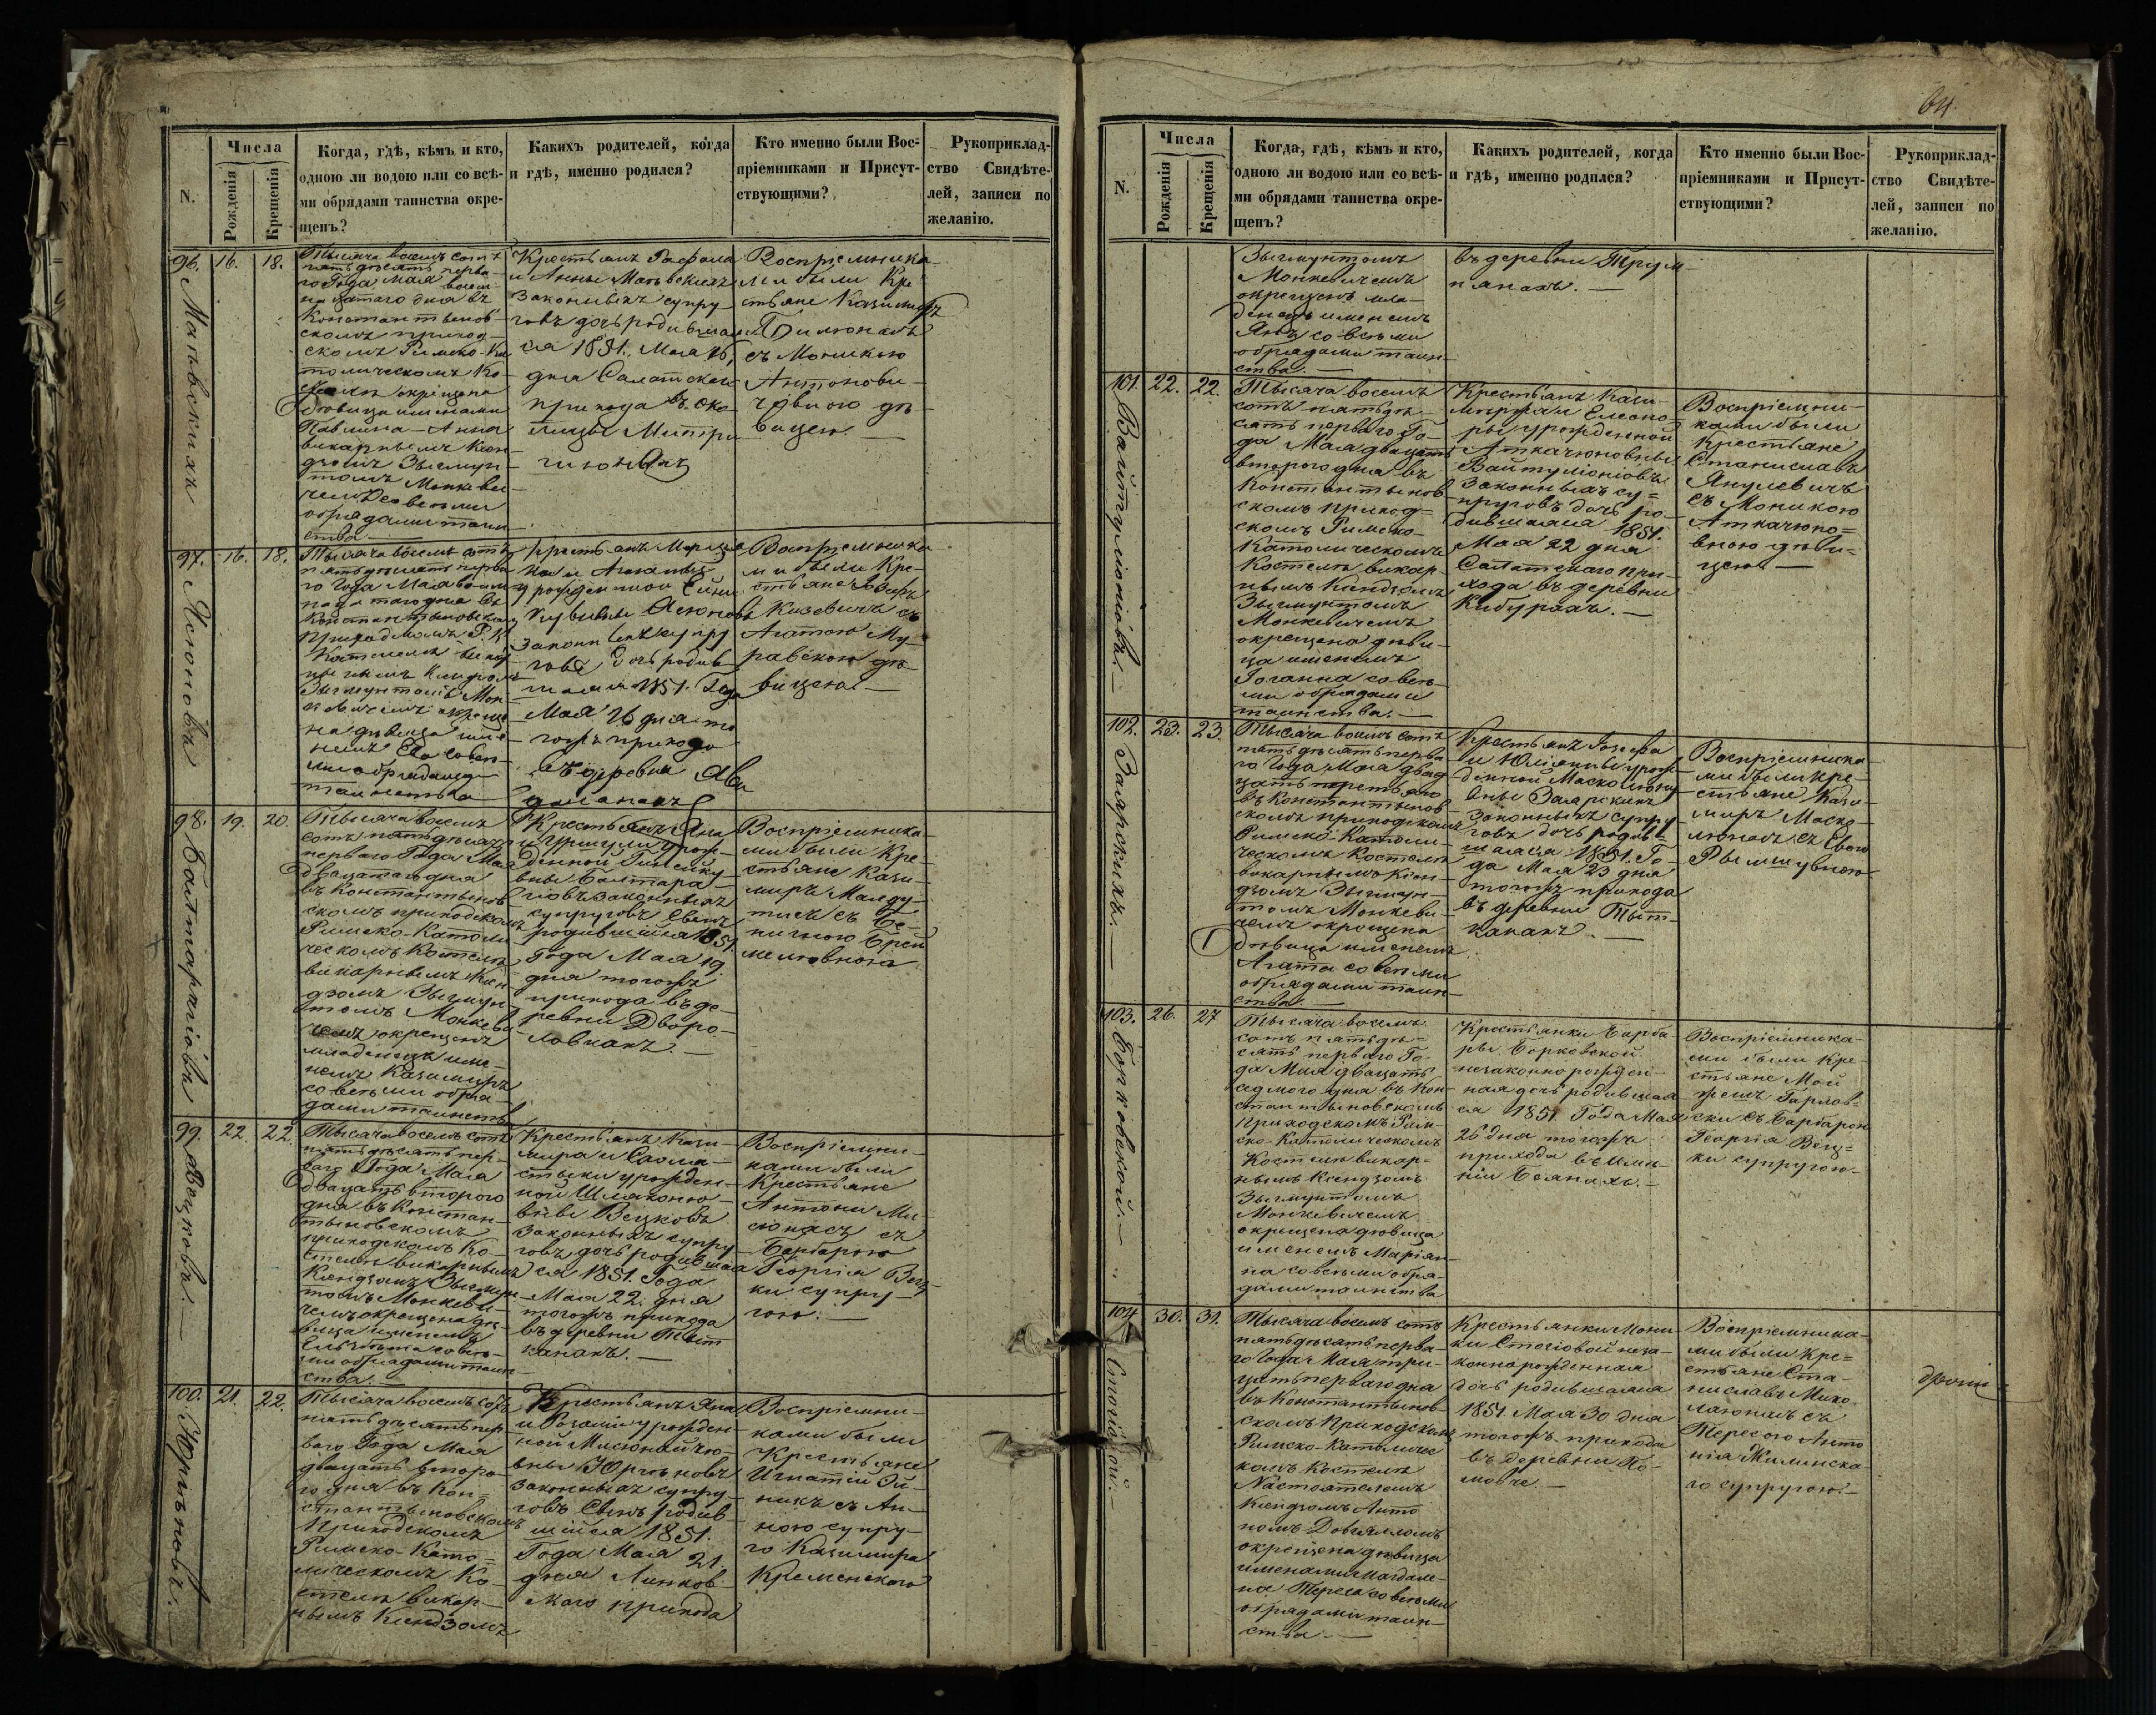 64.
Числа
№.
Рожденія
Крещенія
Когда, гдѣ, кѣмъ и кто,
одною ли водою или со всѣ-
ми обрядами таинства окре-
щенъ?
Какихъ родителей, когда
и гдѣ, именно родился?
Кто именно были Вос-
пріемниками и Присут-
ствующими?
Рукоприклад-
ство Свидѣте-
лей, записи по
желанію.
96. 16. 18.
Тысяча восемь сотъ
пятьдесятъ перва-
го Года Мая восем-
надцатаго дня въ
Константынов-
скомъ приход-
скомъ Римско-Ка
толическомъ Ко-
окрещена
дѣвица именами
Павлина-Анна
викарнымъ Ксен-
дзомъ Зыгмун-
томъ Монкеви-
чемъ со всѣми
обрядами таин-
ства
Крестьянъ Рафала
и Анны
законныхъ супру-
говъ дочь родившая
ся 1851. Мая 16,
дня Салатскаго
прихода въ око-
лицы
Воспріемника-
ми были Кре-
стьяне Казимиръ
съ Моникою
Антонови-
чо́вною дѣ-
вицею.
97. 16. 18.
Тысяча восемь сотъ
пятьдесятъ перва
го Года Мая восем
надцатаго дня въ
Константыновскомъ
Приходскомъ Р. К.
Костелѣ викар
нымъ Ксендзомъ
Зыгмунтомъ Мон
кевичемъ окреще
на дѣвица име-
немъ Ева со всѣ-
ми обрядами
таинства
Крестьянъ
урожденной
законныхъ супру
говъ, дочь родив-
шаяся 1851. Года
Мая 16 дня то
гожъ прихода
въ деревни
Воспріемника
ми были Кре-
стьяне Іозефъ
съ
Агатою Му-
равскою дѣ-
вицею.
98. 19. 20. Балтарагіовъ
Тысяча восемь
сотъ пятьдесятъ
перваго Года Мая
двадцатаго дня
въ Константынов
скомъ приходскомъ
Римско-Католи
ческомъ Костелѣ
викарнымъ Ксен
дзомъ Зыгмун-
томъ Монкеви
чемъ окрещенъ
младенецъ име-
немъ Казимиръ
со всѣми обря-
дами таинства
Крестьянъ Яна
и Уршули урож-
денной
вны Балтара-
гіовъ законныхъ
супруговъ Сынъ
родившійся 1851.
Года Мая 19
дня тогожъ
прихода въ де-
ревни Дворо-
Воспріемника-
ми были Кре-
стьяне Кази-
миръ
съ
99. 22. 22. Вецковъ.
Тысяча восемь сотъ
пятьдесятъ пер-
ваго Года Мая
двадцать втораго
дня въ Констан-
тыновскомъ
приходскомъ Ко-
стелѣ викарнымъ
Ксендзомъ Зыгмун-
томъ Монкеви-
чемъ окрещена дѣ-
вица именемъ
Елѣзбѣта со всѣ-
ми обрядами таин-
ства.
Крестьянъ Кази-
мира и Схола-
стыки урожден-
ной
вны Вецковъ
законныхъ супру-
говъ, дочь родившая
ся 1851. Года
Мая 22. дня
тогожъ прихода
въ деревни Тыт
канахъ.
Воспріемни-
ками были
Крестьяне
Антони Ми-
съ
Барбарою
Георгія Вец-
ки супру-
гою.
100. 21. 22. Юргѣновъ.
Тысяча восемь сотъ
пятьдесятъ пер
ваго Года Мая
двадцать второ-
го дня въ Кон-
стантыновскомъ
Приходскомъ
Римско-Като-
лическомъ Ко-
стелѣ викар-
нымъ Ксендзомъ
Крестьянъ Яна
и Розаліи урожден-
ной
вны Юргѣновъ
законныхъ супру-
говъ Сынъ родив-
шійся 1851.
Года Мая 21
дня Линков-
скаго прихода
Воспріемни-
ками были
Крестьяне
Игнатій
съ Ан-
ною супру-
го Казимира
Кременскаго
Числа
№.
Рожденія
Крещенія
Когда, гдѣ, кѣмъ и кто,
одною ли водою или со всѣ-
ми обрядами таинства окре-
щенъ?
Какихъ родителей, когда
и гдѣ, именно родился?
Кто именно были Вос-
пріемниками и Присут-
ствующими?
Рукоприклад-
ство Свидѣте-
лей, записи по
желанію.
Зыгмунтомъ
Монкевичемъ
окрещенъ мла-
денецъ именемъ
Янъ со всѣми
обрядами таин-
ства.
въ деревни Трум-
панахъ.
101. 22. 22. Вайтуліоніовъ.
Тысяча восемь
сотъ пятьде-
сятъ перваго Го-
да Мая двадцать
втораго дня въ
Константынов
скомъ приход-
скомъ Римско-
Католическомъ
Костелѣ викар-
нымъ Ксендзомъ
Зыгмунтомъ
Монкевичемъ
окрещена дѣви-
ца именемъ
Іоганна со всѣ-
ми обрядами
таинства.
Крестьянъ Кази-
мира и Елеоно-
ры урожденной
Аткачюновны
Вайтуліоніовъ
законныхъ су-
пруговъ дочь ро-
дившаяся 1851.
Мая 22 дня
Салатскаго при-
хода въ деревни
Кибурахъ.
Воспріемни-
ками были
крестьяне
Станиславъ
Янулевичъ
съ Моникою
Аткачюно-
вною дѣви-
цею
102. 23. 23. Заярскихъ.
Тысяча восемь сотъ
пятьдесятъ перва
го Года Мая двад
цать третьяго
въ Константынов
скомъ приходскомъ
Римско-Католи-
ческомъ Костелѣ
викарнымъ Ксен-
дзомъ Зыгмун-
томъ Монкеви-
чемъ окрещена
дѣвица именемъ
Агата со всѣми
обрядами таин-
ства.
Крестьянъ Іозефа
и Юліанны урож-
денной
вны Заярскихъ
законныхъ супру
говъ дочь родив-
шаяся 1851. Го-
да Мая 23 дня
тогожъ прихода
въ деревни Тыт-
канахъ.
Воспріемника-
ми были кре-
стьяне Кази-
миръ
съ Евою
103. 26. 27 Борковской.
Тысяча восемь
сотъ пятьде-
сятъ перваго Го-
да Мая двадцать
седмого дня въ Кон-
стантыновскомъ
Приходскомъ Рим-
ско-Католическомъ
Костелѣ викар-
нымъ Ксендзомъ
Зыгмунтомъ
Монкевичемъ
окрещена дѣвица
именемъ Маріян-
на со всѣми обря-
дами таинства
Крестьянки Барба
ры Борковской
незаконно рожден-
ная дочь родившая
ся 1851 Года Мая
26 дня тогожъ
прихода въ имѣ-
ніи
Воспріемника-
ми были Кре-
стьяне Мой
жешъ
съ Барбарою
Георгія Вец-
ки супругою.
104 30. 31.
Тысяча восемь сотъ
пятьдесятъ перва-
го Года Мая три-
цать перваго дня
въ Константынов-
скомъ Приходскомъ
Римско-Католичес
комъ Костелѣ
Настоятелемъ
Ксендзомъ Анто
номъ Довяллломъ
окрещена дѣвица
именами Магдале-
на Тереса со всѣми
обрядами таин-
ства.
Крестьянки Мони
ки неза-
коннорожденная
дочь родившаяся
1851. Мая 30 дня
тогожъ прихода
въ деревни
Воспріемника-
ми были Кре-
стьяне Ста-
ниславъ Мико-
съ
Тересою Анто
нія Жилинска-
го супругою.